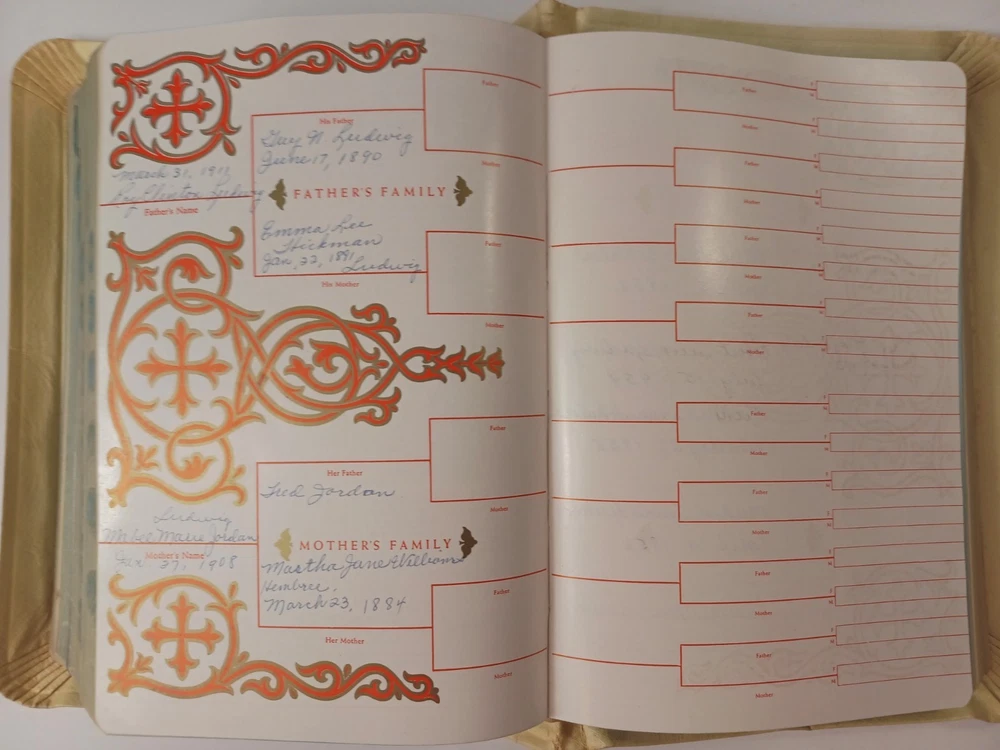 Father
His Father
Guy N Ludwig
June 17, 1890
Mother
March 31, 1911
Roy Clinton Ludwig
Father's Name
FATHER'S FAMILY
Emma Lee
Hickman
Jan, 22, 1891
Ludwig
Father
His Mother
Mother
Father
Her Father
Fred Jordan
Mother
Ludwig
Marie Jordan
Mother's Name
Jan 27, 1908
MOTHER'S FAMILY
Martha June Williams
Hembree,
March 23, 1884
Father
Her Mother
Mother
Father
F
M
Mother
F
M
Father
F
M
Mother
F
M
Father
F
M
Mother
F
M
Father
F
M
Mother
F
M
Father
F
M
Mother
F
M
Father
F
M
Mother
F
M
Father
F
M
Mother
F
M
Father
F
M
Mother
F
M